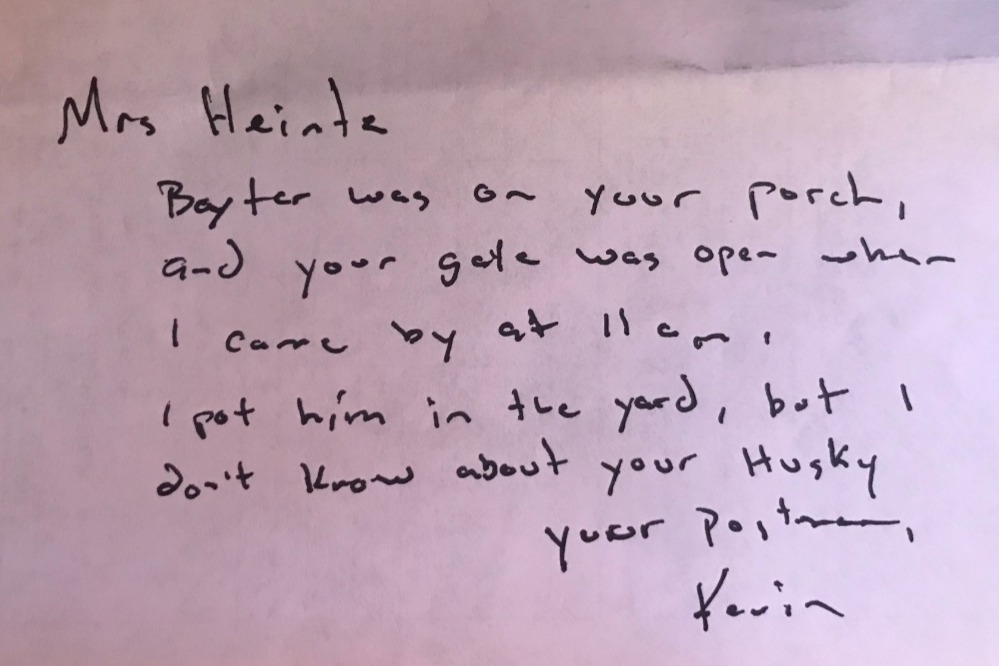 Mrs Heintz
Baxter was on your porch,
and your gate was open when
I came by at 11 am.
I put him in the yard, but I
don't know about your Husky
your Postman,
Kevin